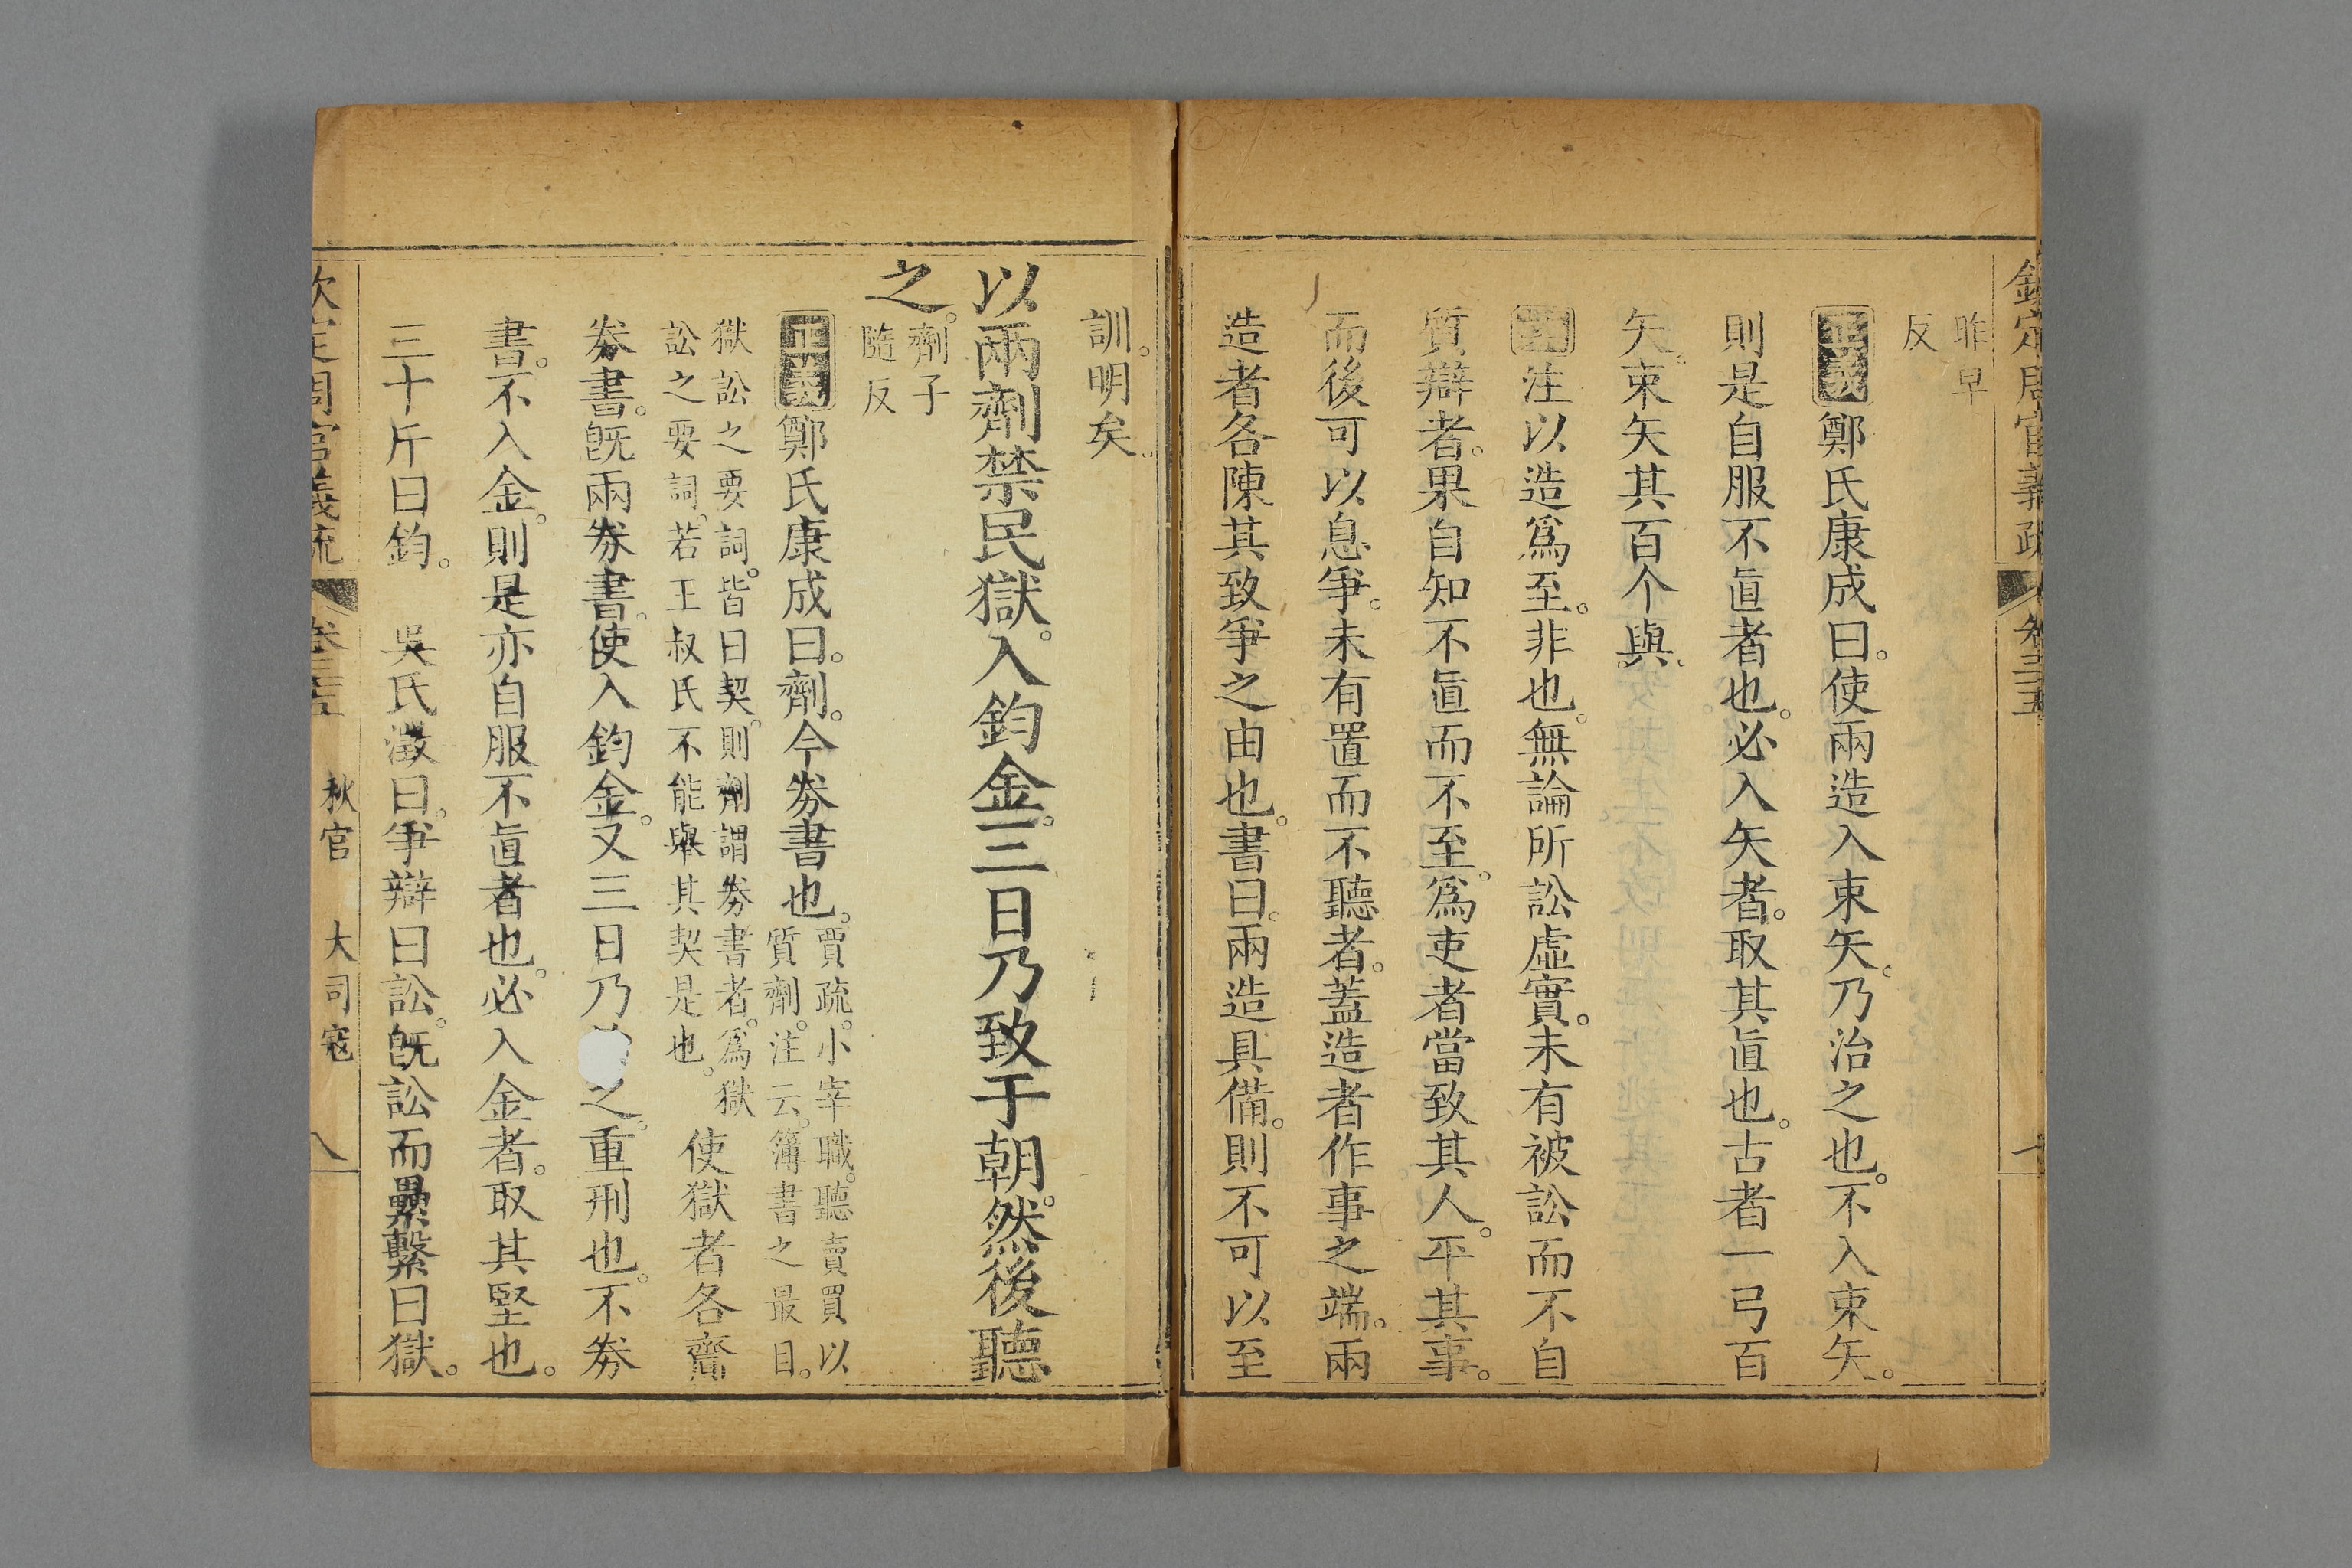 欽定周官義疏 卷三十五
昨早
反
正義鄭氏康成曰。使兩造入束矢。乃治之也。不入束矢。
則是自服不直者也。必入矢者。取其直也。古者一弓百
矢。束矢其百个與。
注以造爲至。非也。無論所訟虛實。未有被訟而不自
質辯者。果自知不直而不至。爲吏者當致其人。平其事。
而後可以息爭。未有置而不聽者。蓋造者作事之端。兩
造者各陳其致爭之由也。書曰。兩造具備。則不可以至
訓。明矣。
以兩劑禁民獄。入鈞金。三日乃致于朝。然後聽
之。
劑子
隨反
正義鄭氏康成曰。劑。今券書也。
賈疏。小宰職。聽賣買以
質劑。注云。簿書之最目。
獄訟之要詞。皆曰契。則劑謂券書者。爲獄
訟之要詞。若王叔氏不能舉其契是也。
使獄者各齎
券書。旣兩券書。使入鈞金。又三日乃之。重刑也。不券
書。不入金。則是亦自服不直者也。必入金者。取其堅也。
三十斤曰鈞。 吳氏澂曰。爭辯曰訟。旣訟而纍繫曰獄。
欽定周官義疏 卷三十五 秋官 大司寇 八